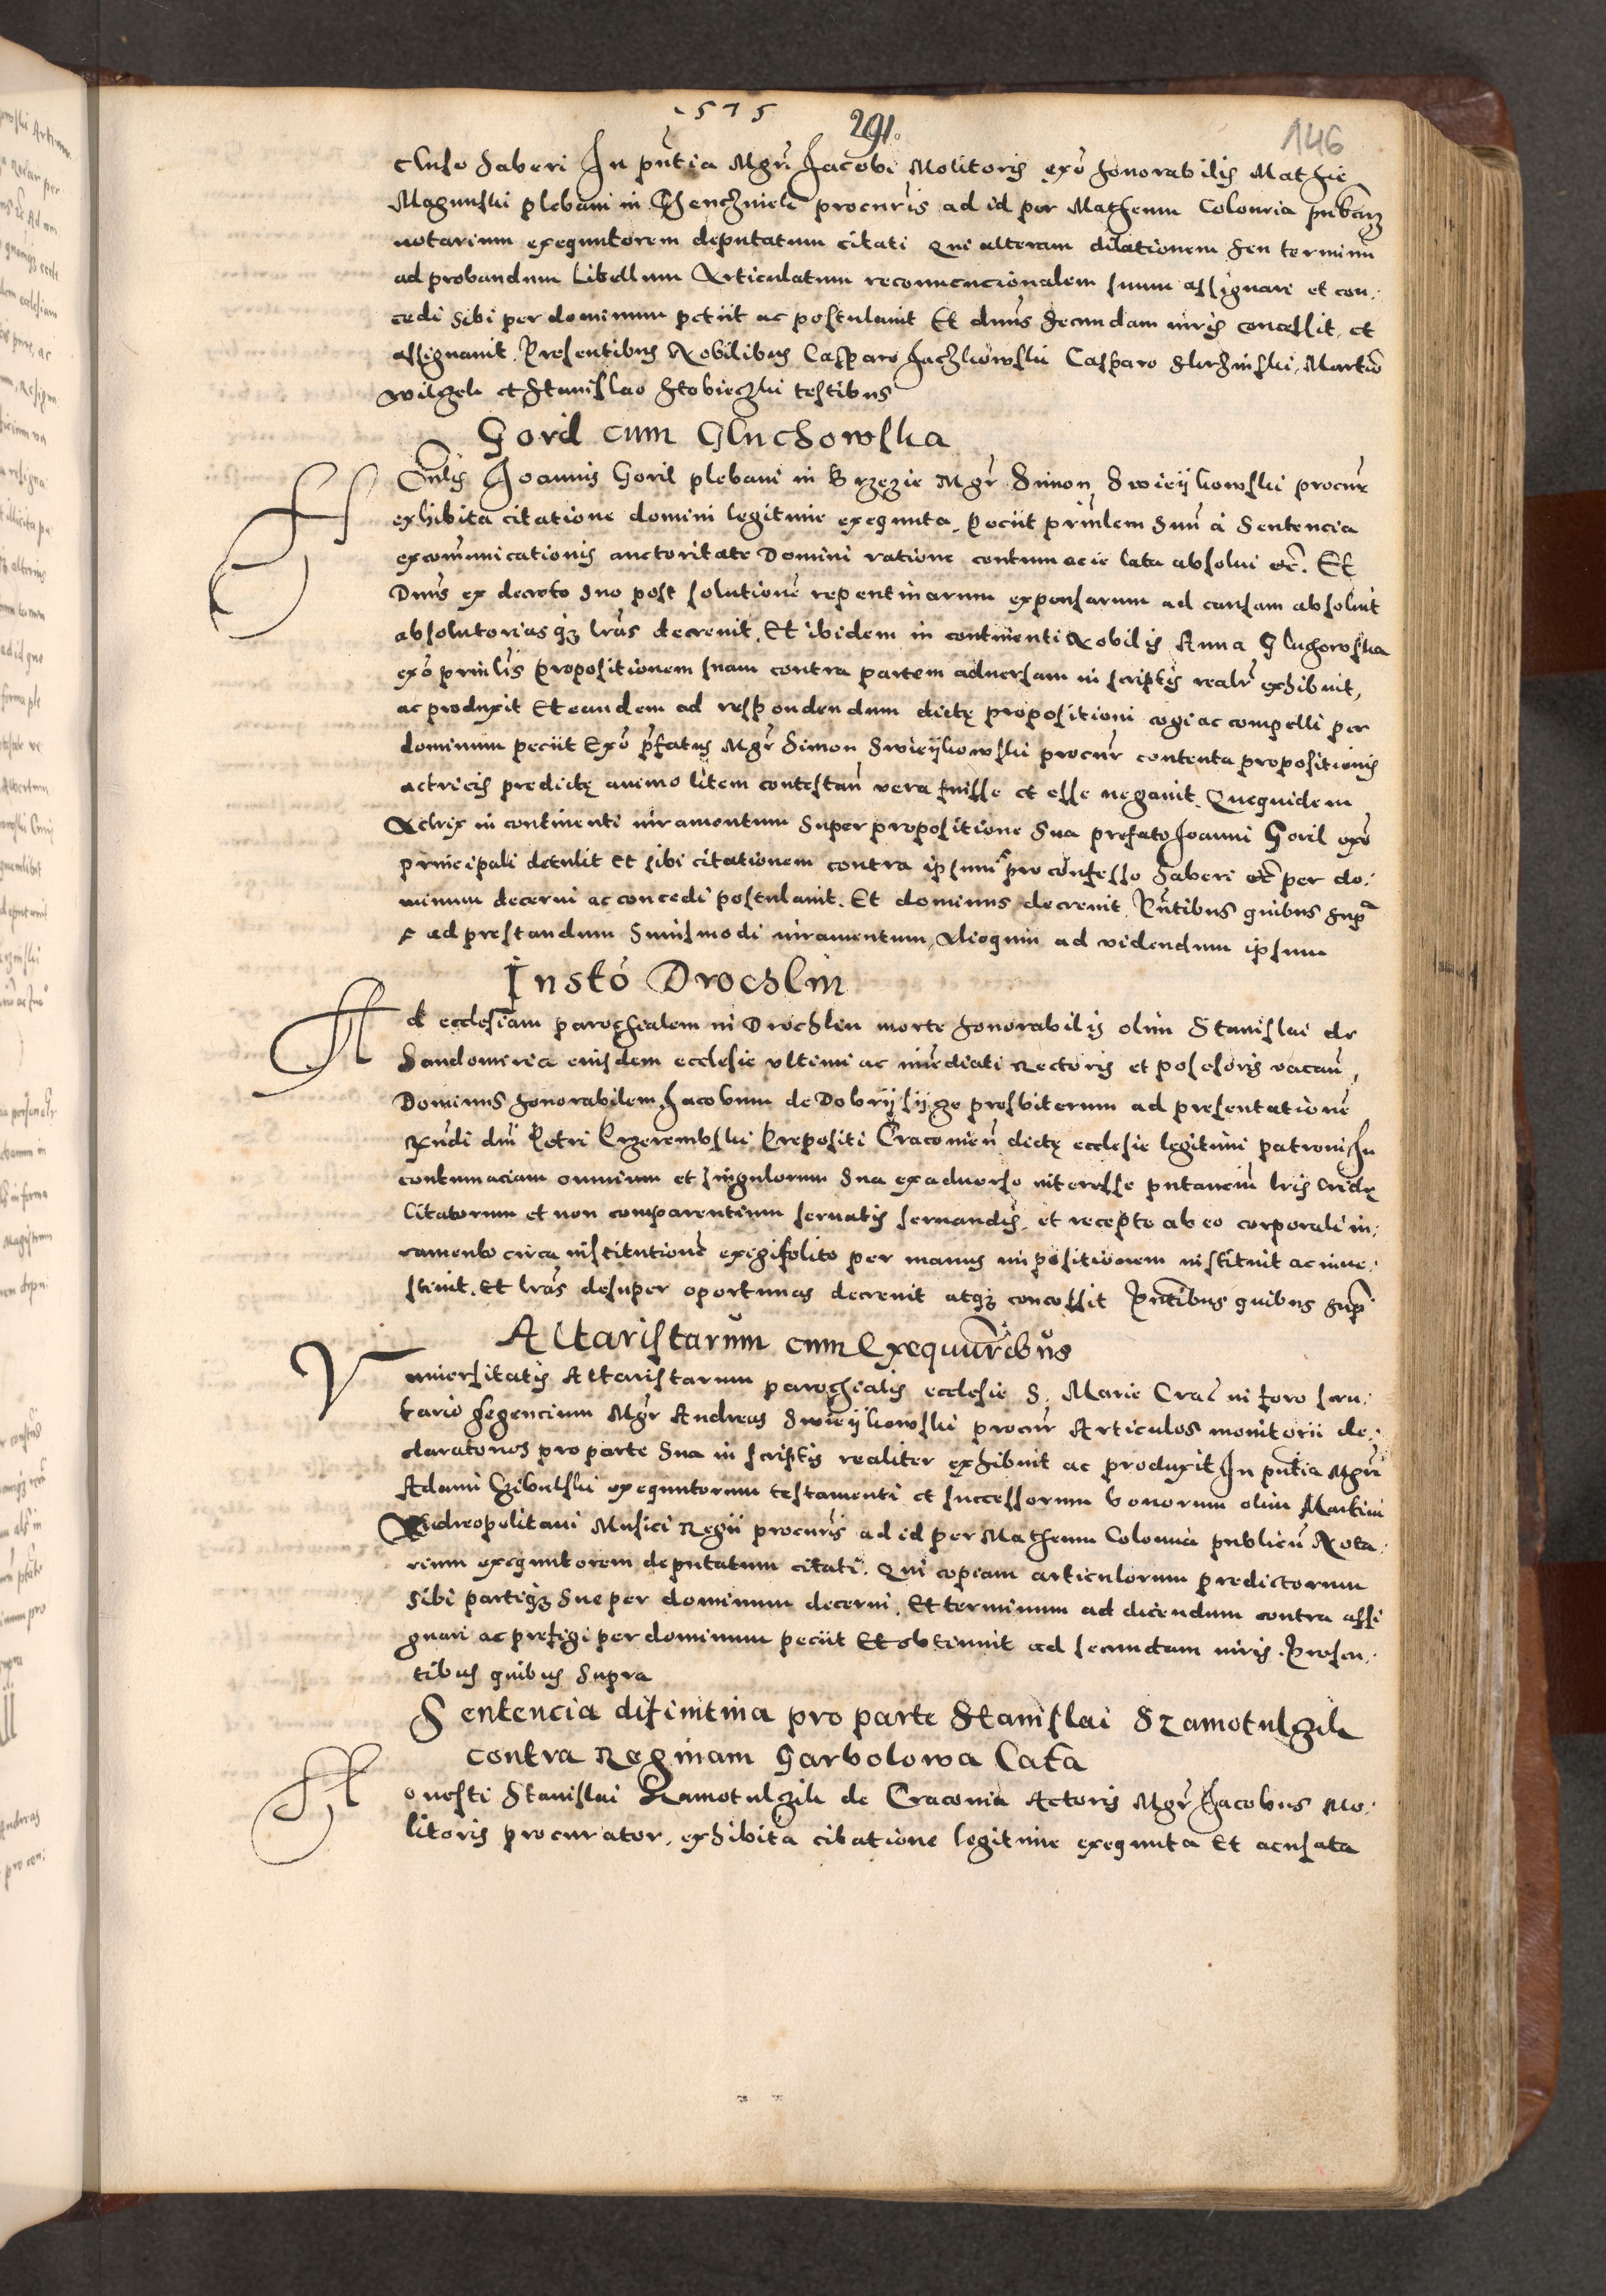 1575
291.
146
cluso haberi In pñtia Mgri Jacobi Molitoris exō honorabilis Mathie
Magunski plebani in procuris ad id per Matheum Colonria
notarium exequutorem deputatum citati Qui alteram dilationem seu terminū
ad probandum Libellum Articulatum reconuencionalem suum assignari et con:
cedi sibi per dominum petiit ac postulauit Et dnus secundam iuris concessit et
assignauit. Presentibus Nobilibus Casparo Casparo Martio
et Stanislao testibus
Goril cum Gluchowska
Honlis Joannis Goril plebani in Brzezie Mgr Simon Swieÿkowski procur
exhibita citatione domini legitime exequuta. Peciit prinlem suū à Sentencia
excommunicationis auctoritate Domini ratione contumacie lata absolui etc̄. Et
Dnus ex decreto suo post solutionē repentinarum expensarum ad causam absoluit
absolutoriasqz lras decreuit. Et ibidem in continenti Nobilis Anna Gluchowska
exō prinlis propositionem suam contra partem aduersam in scriptis realr exhibuit,
ac produxit Et eandem ad respondendum dictę propositioni cogi ac compelli per
dominum peciit Exō pfatus Mgr Simon Swieÿkowski procur contenta propositionis
actricis predictę animo litem contestan̄ vera fuisse et esse negauit. Quequidem
Actrix in continenti iuramentum super propositione sua prefato Joanni Goril exō
principali detulit et sibi citationem contra ipsum ꝉ pro confesso haberi etc̄ per do:
minum decerni ac concedi postulauit. Et dominus decreuit. Pntibus quibus supra
ꝉ ad prestandum huiusmodi iuramentum, Alioquin ad videndum ipsum
Insto Drochlin
Ad ecclesiam parochialem in Drochlin morte honorabilis olim Stanislai de
Sandomiria eiusdem ecclesie vltimi ac immediati Rectoris et possesoris vacan̄,
Dominus honorabilem Jacobum de presbiterum ad presentationē
Rndi dni Petri Przerembski Prepositi Cracouien̄ dictę ecclesie legitimi patroni In
contumaciam omnium et singulorum sua ex aduerso interesse putancium lris Cridę
Citatorum et non comparentium seruatis seruandis. et recepto ab eo corporali iu:
ramento circa institutionē exigi solito per manus impositionem instituit ac inue:
stiuit. Et lras desuper oportunas decreuit atqz concessit Pntibus quibus supra
Altaristarum cum Exequutoribus
Vniuersitatis Altaristarum parochialis ecclesie S. Marie Crac̄ in foro scru:
tario degencium Mgr Andreas Swieÿkowski procur Articulos monitorii de:
claratorios pro parte sua in scriptis realiter exhibuit ac produxit In pntia Mgri
Adami Czibulski exequutorum testamenti et successorum bonorum olim Martini
Andreopolitani Musici Regii procuris ad id per Matheum Colonria publicū Nota:
rium exequutorem deputatum citati. Qui copiam articulorum predictorum
sibi partiqz sue per dominum decerni. Et terminum ad dicendum contra assi
gnari ac prefigi per dominum peciit Et obtinuit ad secundam iuris. Presen:
tibus quibus supra
Sentencia difinitiua pro parte Stanislai Szamotulczik
contra Reginam Garbolowa Lata
Honesti Stanislai Szamotulczik de Cracouia Actoris Mgr Jacobus Mo:
litoris procurator, exhibita citatione legitime exequuta Et acusata